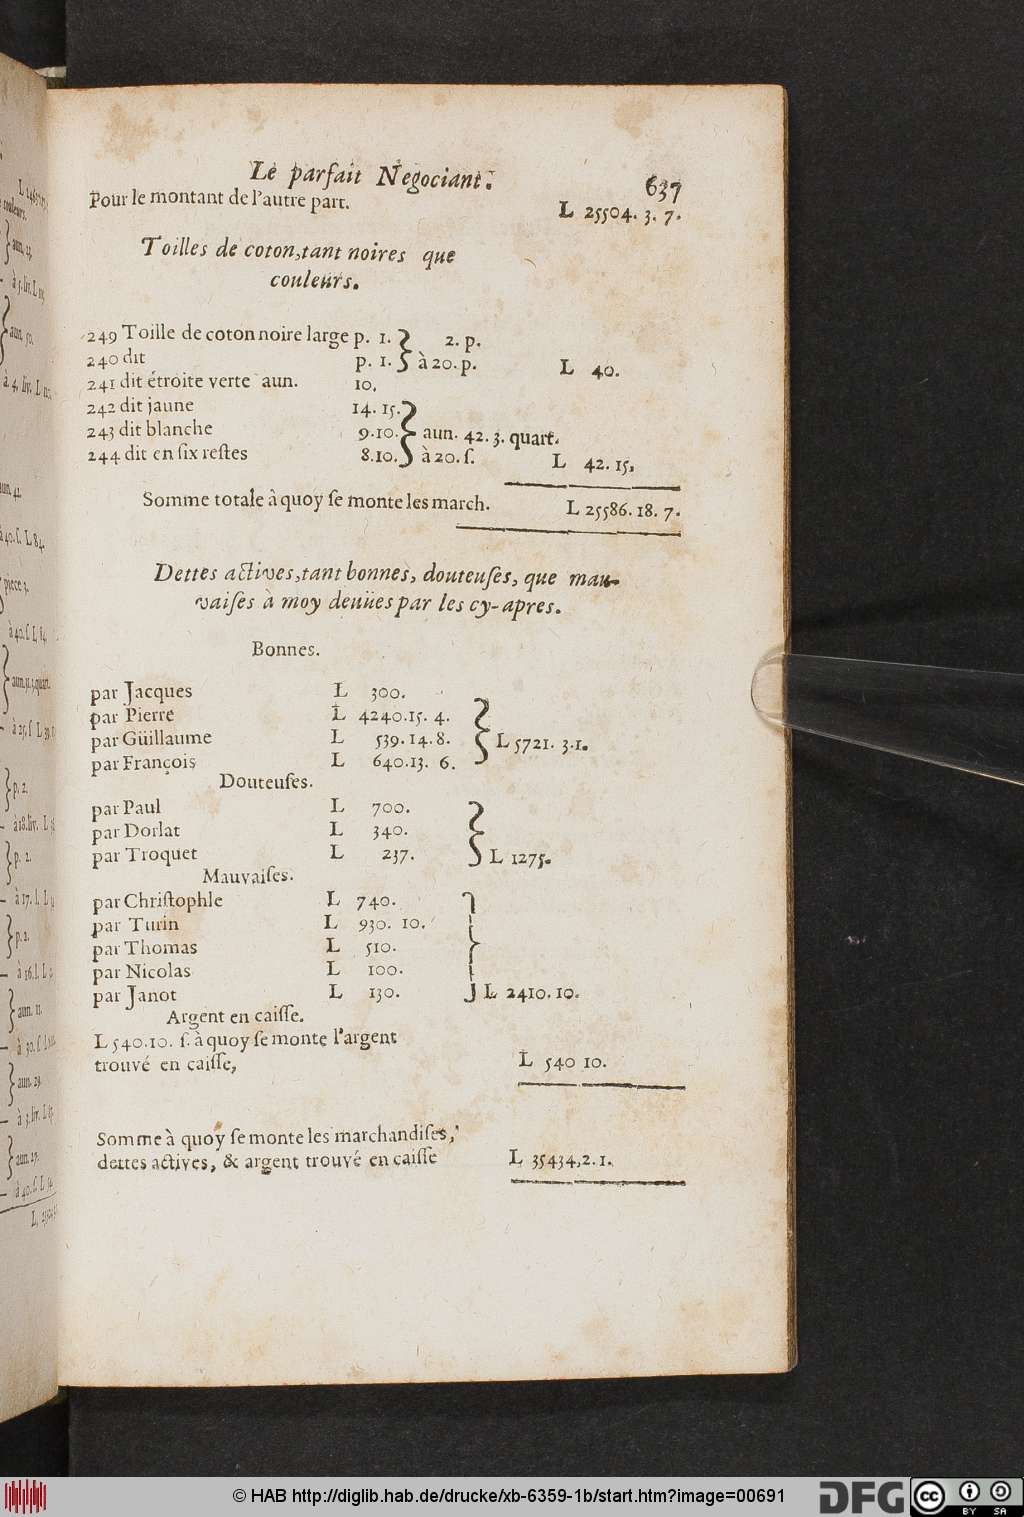 Le parfait Negociant. 637
Pour le montant de l'autre part. L 25504. 3. 7.
Toilles de coton, tant noires que
couleurs.
249 Toille de coton noire large p. 1. } 2. p.
240 dit p. 1. } à 20. p. L 40.
241 dit étroite verte aun. 10.
242 dit jaune 14. 15.
243 dit blanche 9.10. } aun. 42. 3. quart.
244 dit en six restes 8.10. } à 20. ſ. L 42. 15.
Somme totale à quoy ſe monte les march. L 25586. 18. 7.
Dettes actives, tant bonnes, douteuſes, que mau-
vaiſes à moy deuües par les cy-apres.
Bonnes.
par Jacques L 300.
par Pierre L 4240.15. 4.
par Güillaume L 539.14.8. } L 5721. 3.1.
par François L 640.13. 6.
Douteuſes.
par Paul L 700.
par Dorlat L 340.
par Troquet L 237. } L 1275.
Mauvaiſes.
par Chriſtophle L 740.
par Turin L 930. 10.
par Thomas L 510.
par Nicolas L 100.
par Janot L 130. } L 2410. 10.
Argent en caiſſe.
L 540.10. ſ. à quoy ſe monte l'argent
trouvé en caiſſe, L 540 10.
Somme à quoy ſe monte les marchandiſes,
dettes actives, & argent trouvé en caiſſe L 35434,2. 1.
© HAB http://diglib.hab.de/drucke/xb-6359-1b/start.htm?image=00691
DFG
cc
BY SA